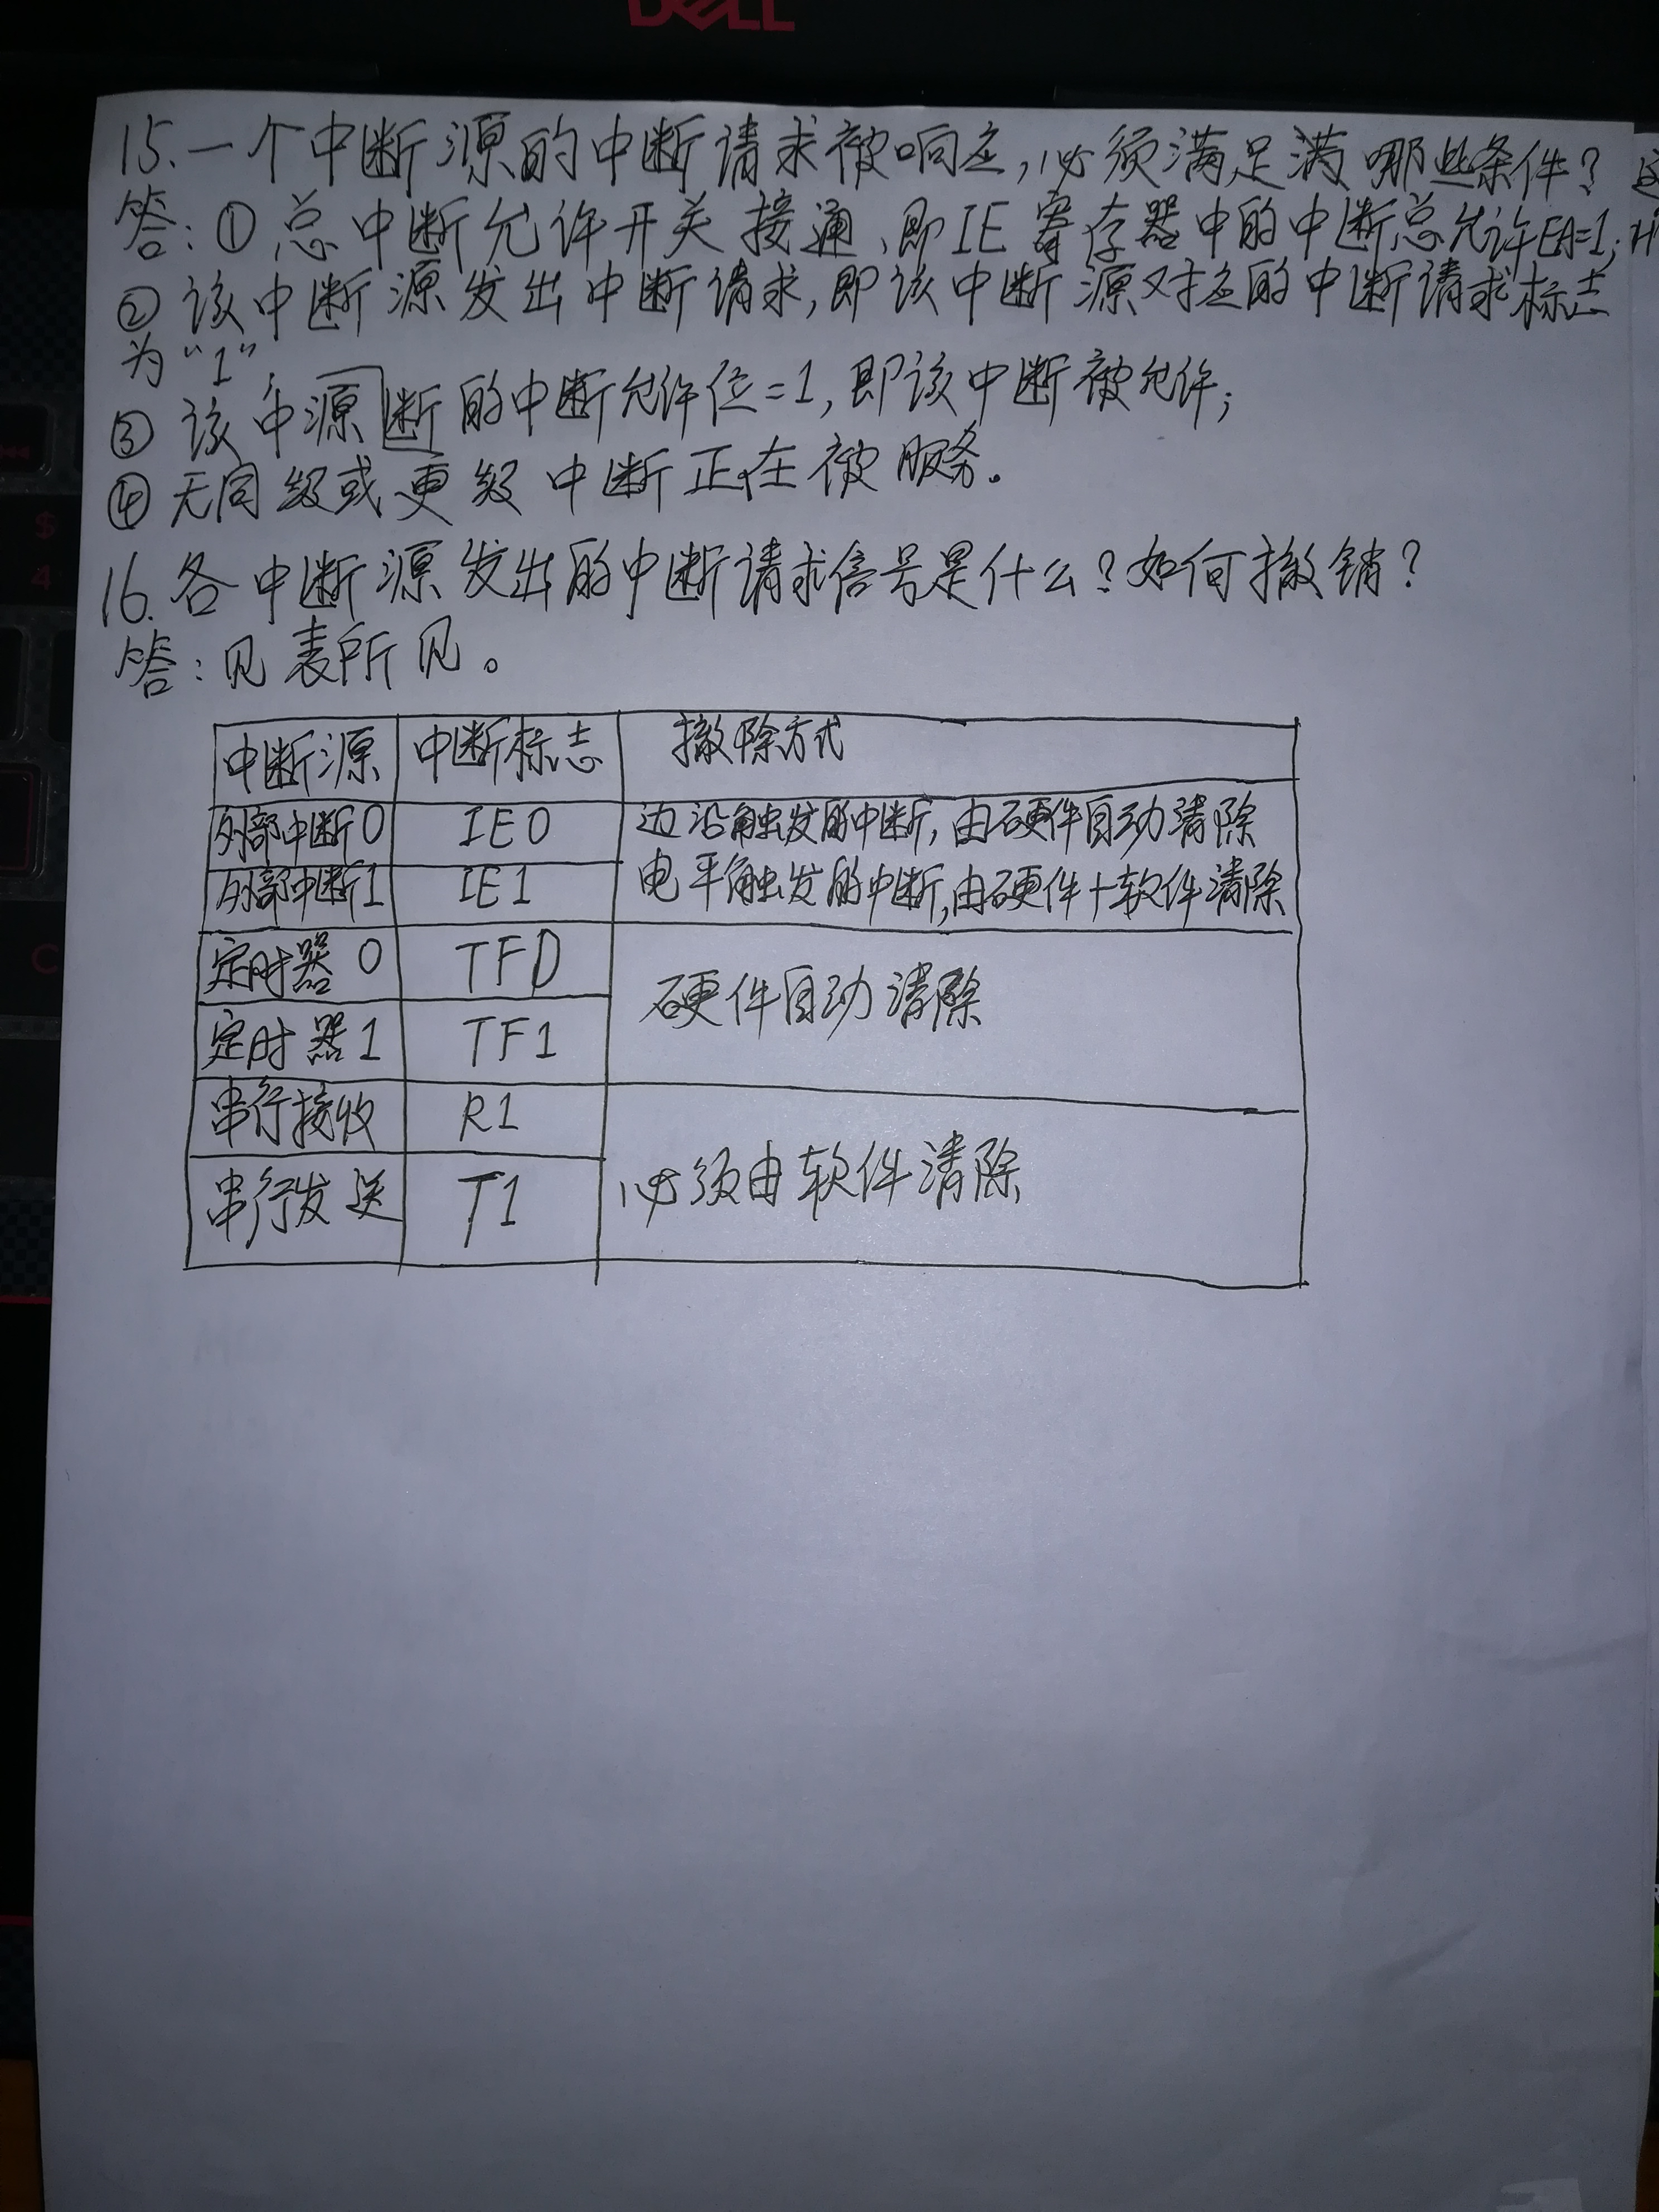 DELL
15.一个中断源的中断请求被响应,必须满足满哪些条件?
答:①总中断允许开关接通,即IE寄存器中的中断总允许EA=1;
②该中断源发出中断请求,即该中断源对应的中断请求标志
为“1”;
③该中源断的中断允许位=1,即该中断被允许;
④无同级或更级中断正在被服务。
16.各中断源发出的中断请求信号是什么?如何撤销?
答:见表所见。
中断源 中断标志 撤除方式
外部中断0 IE0 边沿触发的中断,由硬件自动清除
外部中断1 IE1 电平触发的中断,由硬件+软件清除
定时器0 TF0
硬件自动清除
定时器1 TF1
串行接收 R1
必须由软件清除
串行发送 T1